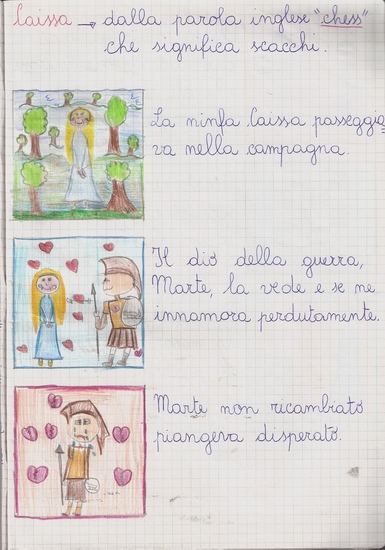 Caissa → dalla parola inglese "chess"
che significa scacchi.
La ninfa Caissa passeggia
va nella campagna.
Il dio della guerra,
Marte, la vede e se ne
innamora perdutamente.
Marte non ricambiato
piangeva disperato.